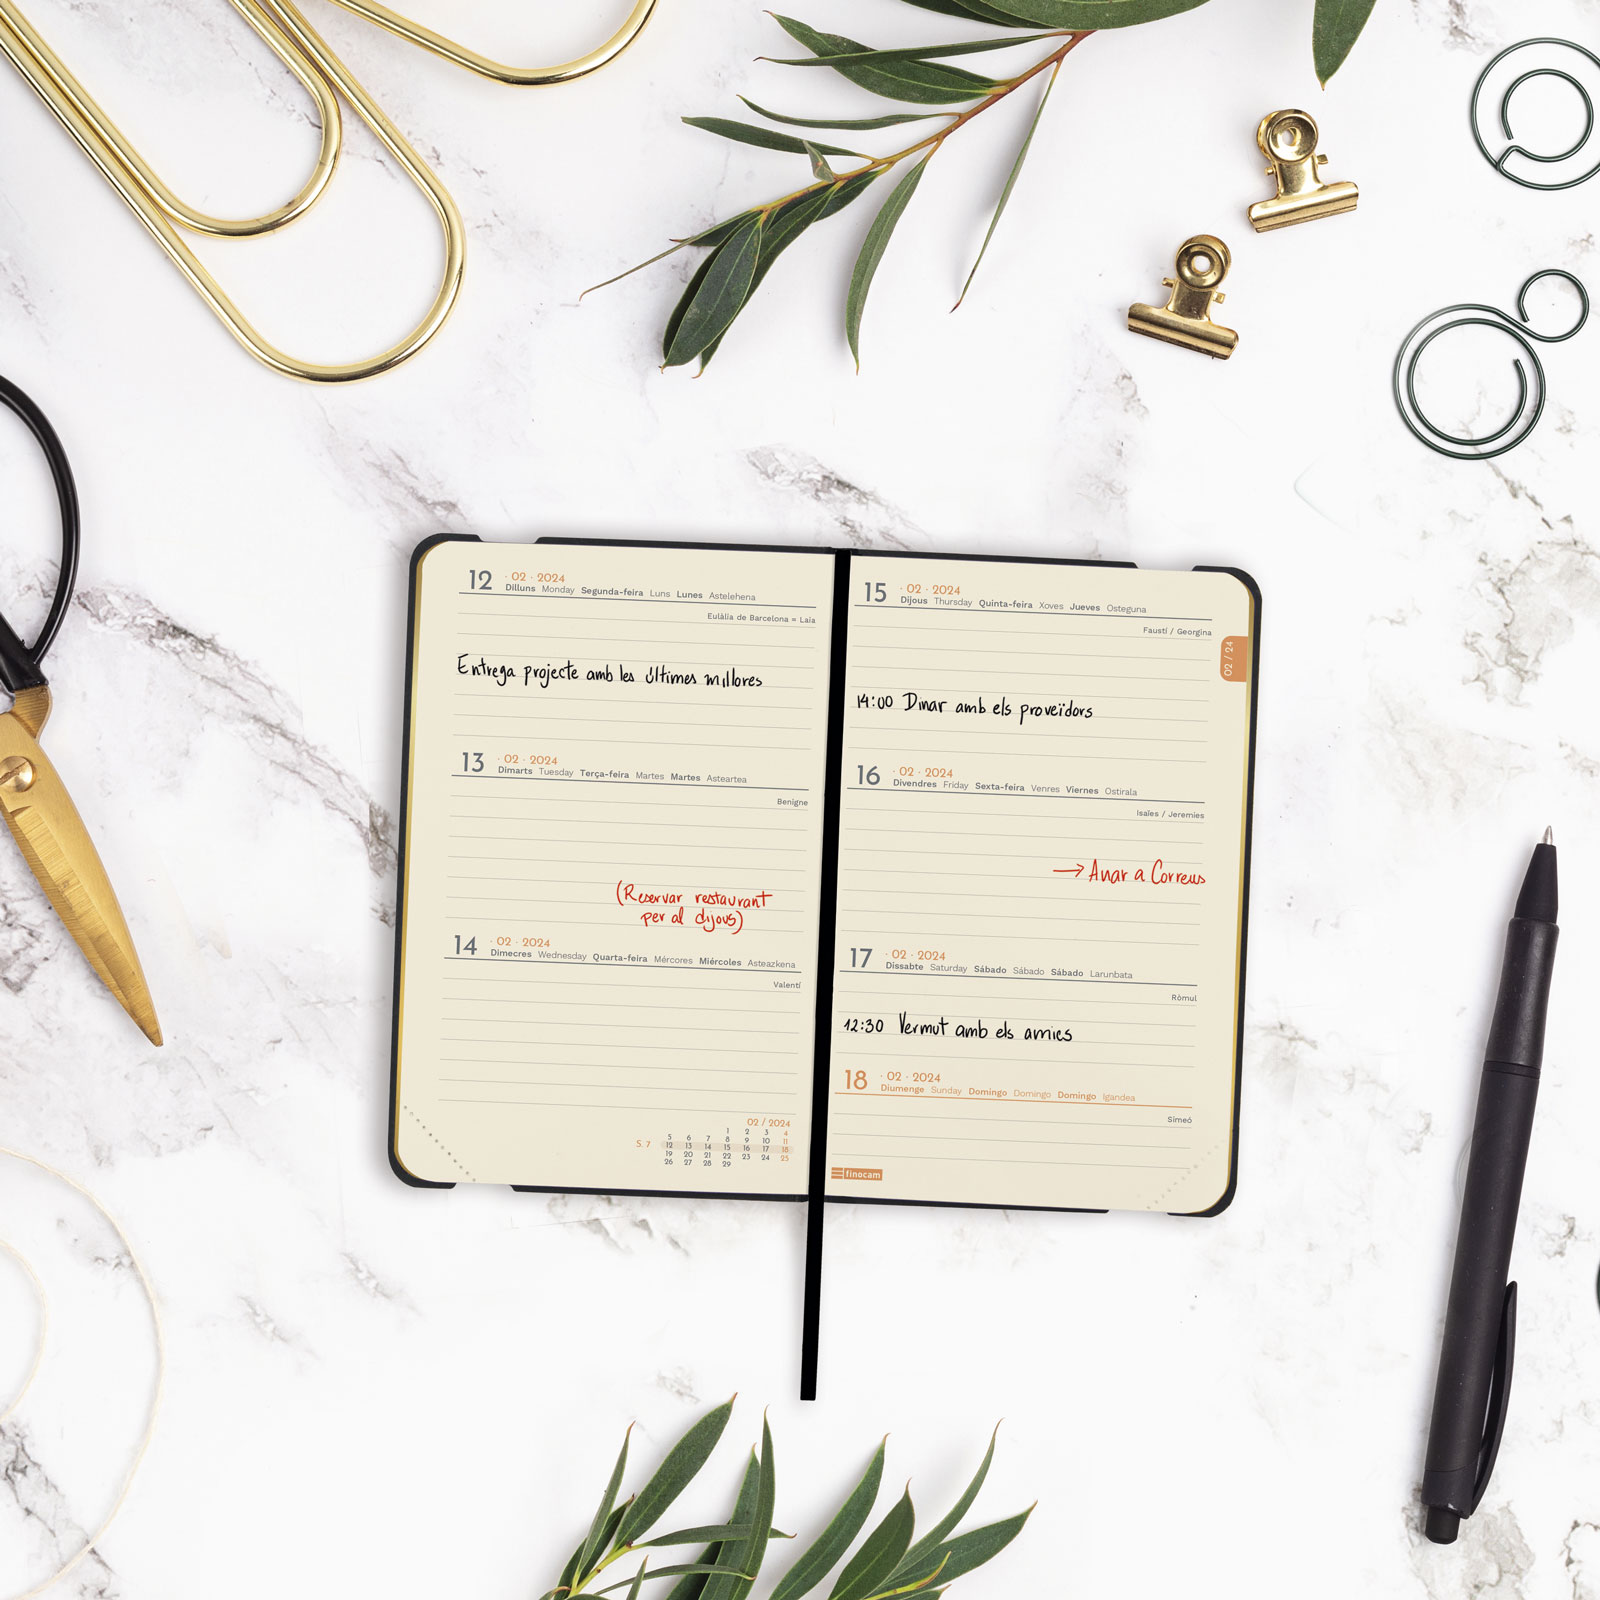 12 · 02 · 2024
Dilluns Monday Segunda-feira Luns Lunes Astelehena
Eulàlia de Barcelona = Laia
Entrega projecte amb les últimes millores
13 · 02 · 2024
Dimarts Tuesday Terça-feira Martes Martes Asteartea
Benigne
(Reservar restaurant
per al dijous)
14 · 02 · 2024
Dimecres Wednesday Quarta-feira Mércores Miércoles Asteazkena
Valentí
02 / 2024
1 2 3 4
5 6 7 8 9 10 11
S. 7 12 13 14 15 16 17 18
19 20 21 22 23 24 25
26 27 28 29
15 · 02 · 2024
Dijous Thursday Quinta-feira Xoves Jueves Osteguna
Faustí / Georgina
02 / 24
14:00 Dinar amb els proveïdors
16 · 02 · 2024
Divendres Friday Sexta-feira Venres Viernes Ostirala
Isaïes / Jeremies
→ Anar a Correus
17 · 02 · 2024
Dissabte Saturday Sábado Sábado Sábado Larunbata
Ròmul
12:30 Vermut amb els amics
18 · 02 · 2024
Diumenge Sunday Domingo Domingo Domingo Igandea
Simeó
finocam